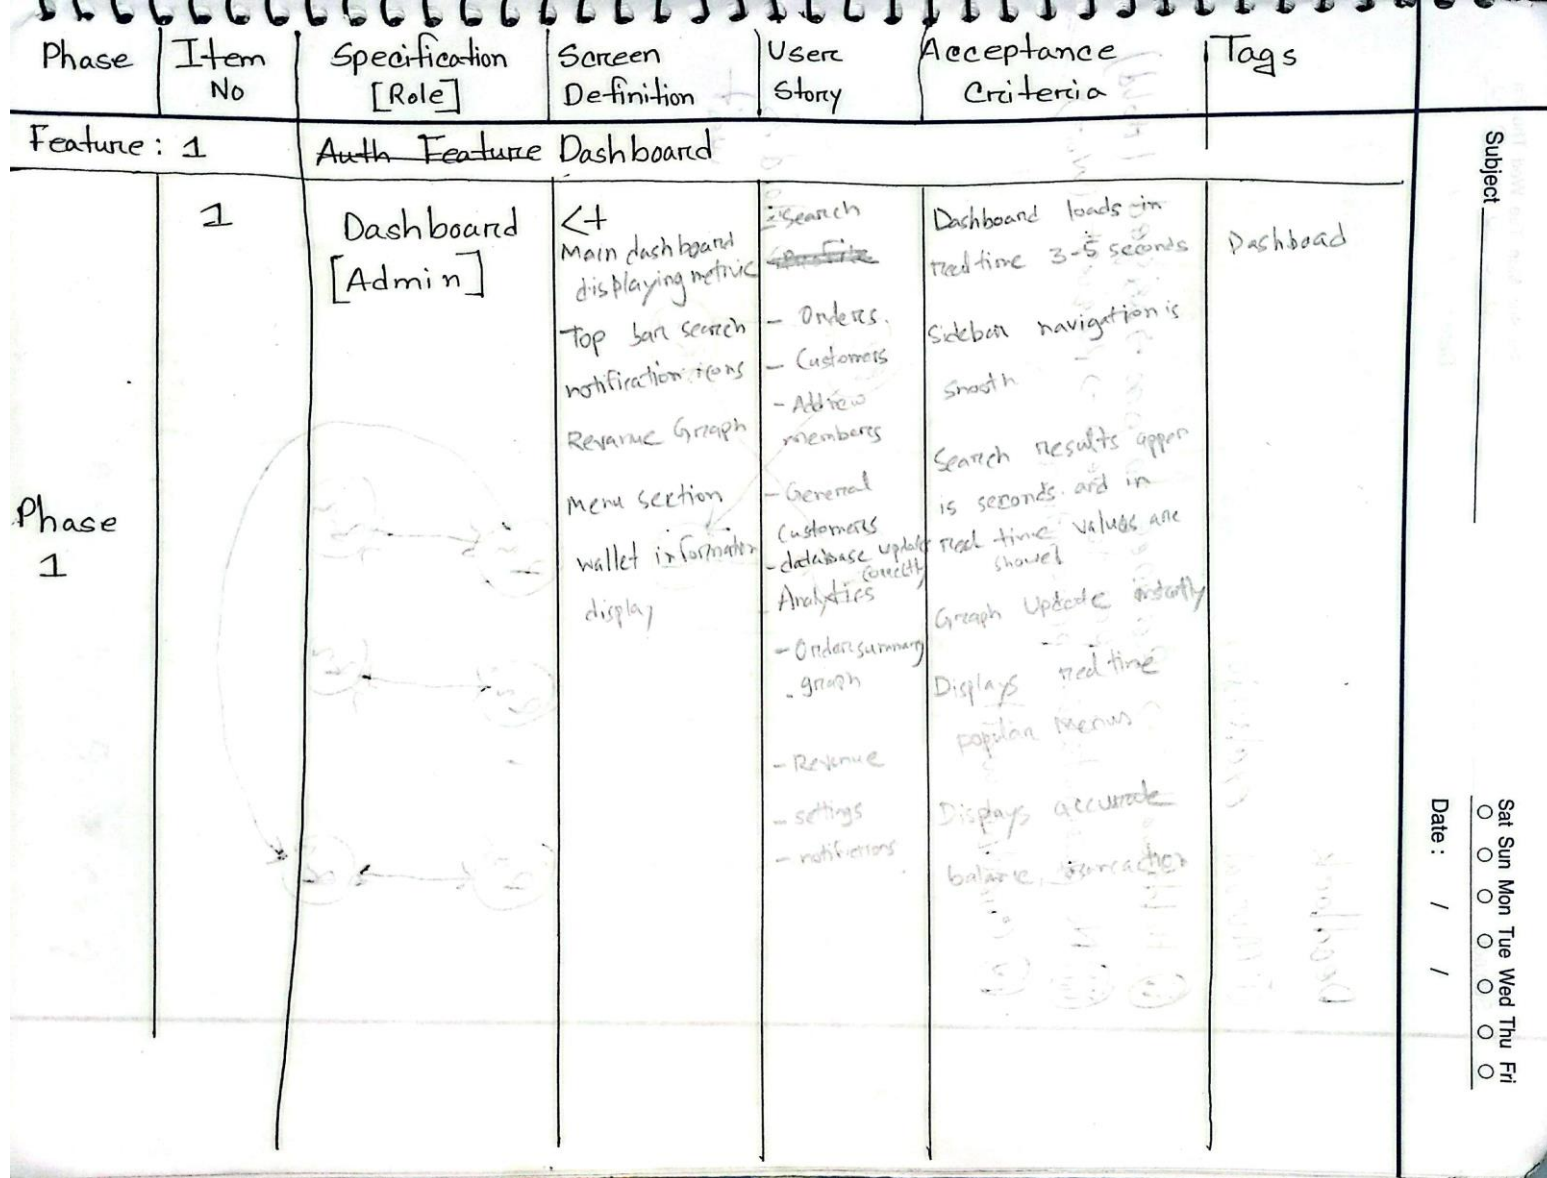 Phase
Item No
Specification [Role]
Screen Definition
User Story
Acceptance Criteria
Tags
Feature: 1
Auth Feature Dashboard
Phase 1
1
Dashboard
[Admin]
<+
Main dashboard
displaying metric
Top bar search
notification icons
Revanue Graph
Menu section
wallet information
display
- Search
- Orders.
- Customers
- Add new
members
- General
Customers
- database update
correctly
Analytics
- Order summary
- graph
- Revenue
- settings
- notifictions
Dashboard loads in
real time 3-5 seconds
Sidebar navigation is
smooth
Search results apper
is seconds and in
real time values are
showel
Graph Update instantly
Displays real time
popular Menus
Displays accurate
balance,
Dashboad
Subject
Date: / /
Sat Sun Mon Tue Wed Thu Fri